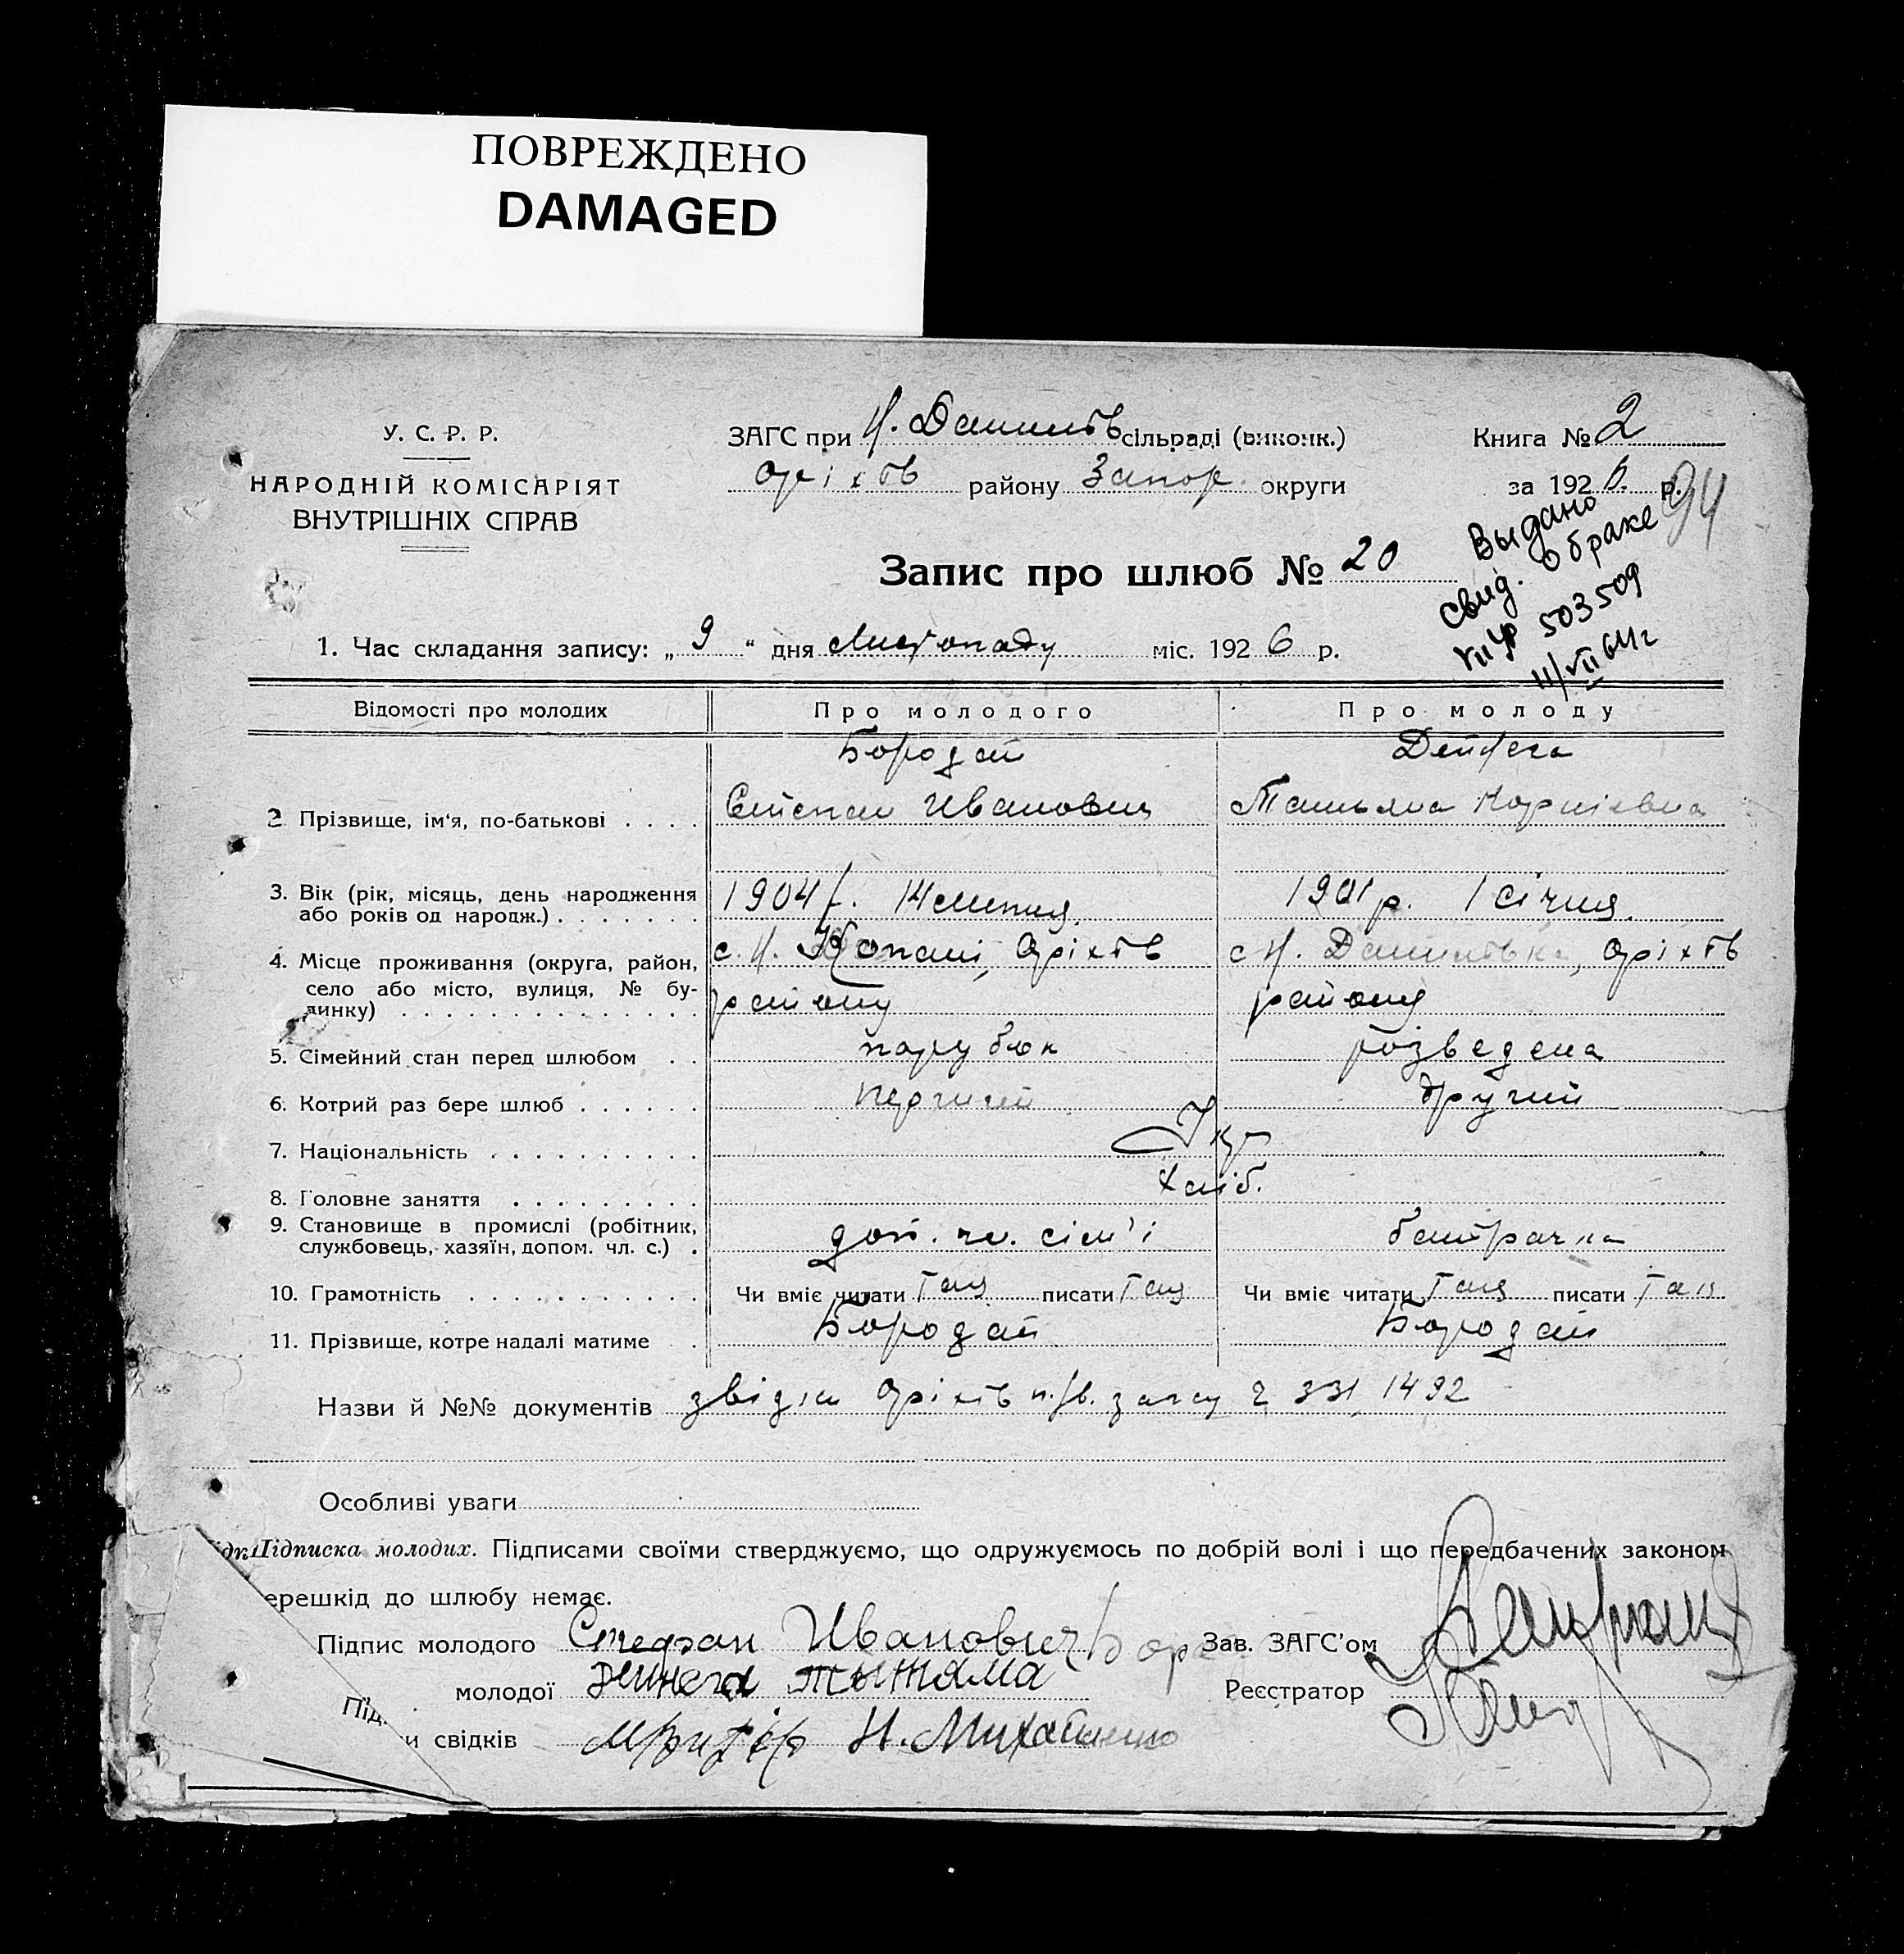 ПОВРЕЖДЕНО
DAMAGED
У. С. Р. Р.
НАРОДНІЙ КОМІСАРІЯТ
ВНУТРІШНІХ СПРАВ
ЗАГС при Н. Данилів сільраді (виконк.)
Оріхів району Запор. округи
Книга № 2
за 1926 р.
94
Выдано
свид. о браке
503509
11/VII 64 г
Запис про шлюб № 20
1. Час складання запису: „ 9 “ дня Листопаду міс. 192 6 р.
Відомості про молодих Про молодого Про молоду
Бородай
2 Прізвище, ім'я, по-батькові . . . . Степан Иванович Татьяна Корніївна
3. Вік (рік, місяць, день народження 1904 р. 14 липня. 1901 р. 1 січня.
або років од народж.) . . . . . . .
4. Місце проживання (округа, район, с. Н. Копані, Оріхів с Н. Данилівка, Оріхів
село або місто, вулиця, № бу- району району
динку) . . . . . . . . . . . . . .
5. Сімейний стан перед шлюбом . . парубок розведена
6. Котрий раз бере шлюб . . . . . . перший другий
7. Національність . . . . . . . . . . Укр
8. Головне заняття . . . . . . . . . Хліб.
9. Становище в промислі (робітник, доп. чл. сім'ї батрачка
службовець, хазяїн, допом. чл. с.) .
10. Грамотність . . . . . . . . . . . Чи вміє читати так писати так Чи вміє читати так писати так
11. Прізвище, котре надалі матиме . Бородай Бородай
Назви й №№ документів звідки Оріхів загсу 331, 1492
Особливі уваги
Підписка молодих. Підписами своїми стверджуємо, що одружуємось по добрій волі і що передбачених законом
ерешкід до шлюбу немає.
Підпис молодого Стефан Иванович Боро Зав. ЗАГС'ом
молодої Реєстратор
Під
и свідків Н. Михайленко